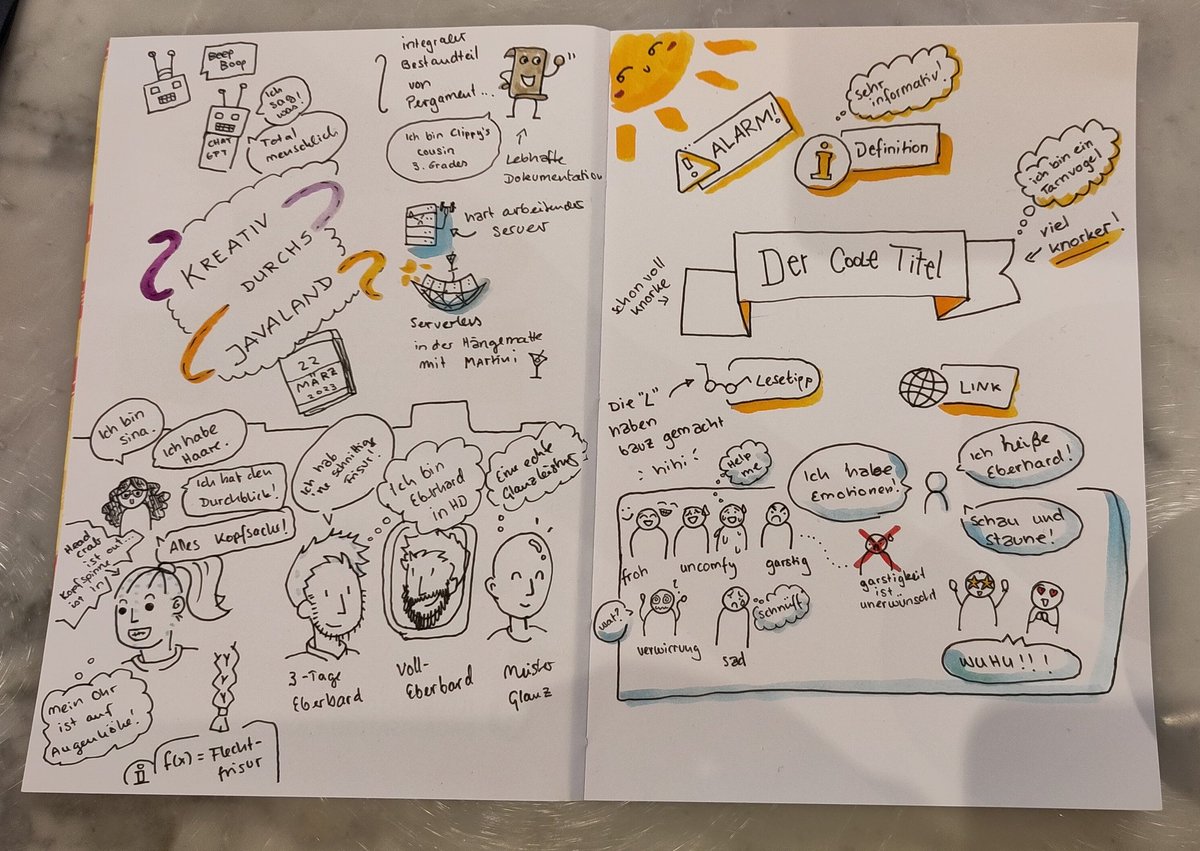 BEEP
BOOP
Ich
sag
was!
CHAT
GPT
Total
menschlich
integraler
Bestandteil
von
Pergament...
Ich bin Clippy's
cousin
3. Grades
Lebhafte
Dokumentation
KREATIV
DURCHS
JAVALAND
22
MÄRZ
2023
hart arbeitender
Server
Serverless
in der Hängematte
mit Martini
Ich bin
Sina.
Ich habe
Haare.
Ich hat den
Durchblick!
Alles Kopfsache!
Ich hab
'ne schnittige
Frisur!
Ich bin
Eberhard
in HD
Eine echte
Glanzleistung
Head
crab
ist out...
Kopfspinne
ist in!
mein Ohr
ist auf
Augenhöhe!
i f(x) = Flecht-
frisur
3-Tage
Eberbard
Voll-
Eberbard
Meister
Glanz
ALARM!
sehr
informativ!
i
Definition
ich bin ein
Tarnvogel
viel
knorker!
Der Coole Titel
schon voll
knorke
Lesetipp
LINK
Die "L"
haben
bauz gemacht
hihi
Help
me
Ich habe
Emotionen!
Ich heiße
Eberhard!
schau und
staune!
froh
uncomfy
garstig
garstigkeit
ist
unerwünscht
wat?
verwirrung
sad
schnüff
WUHU!!!